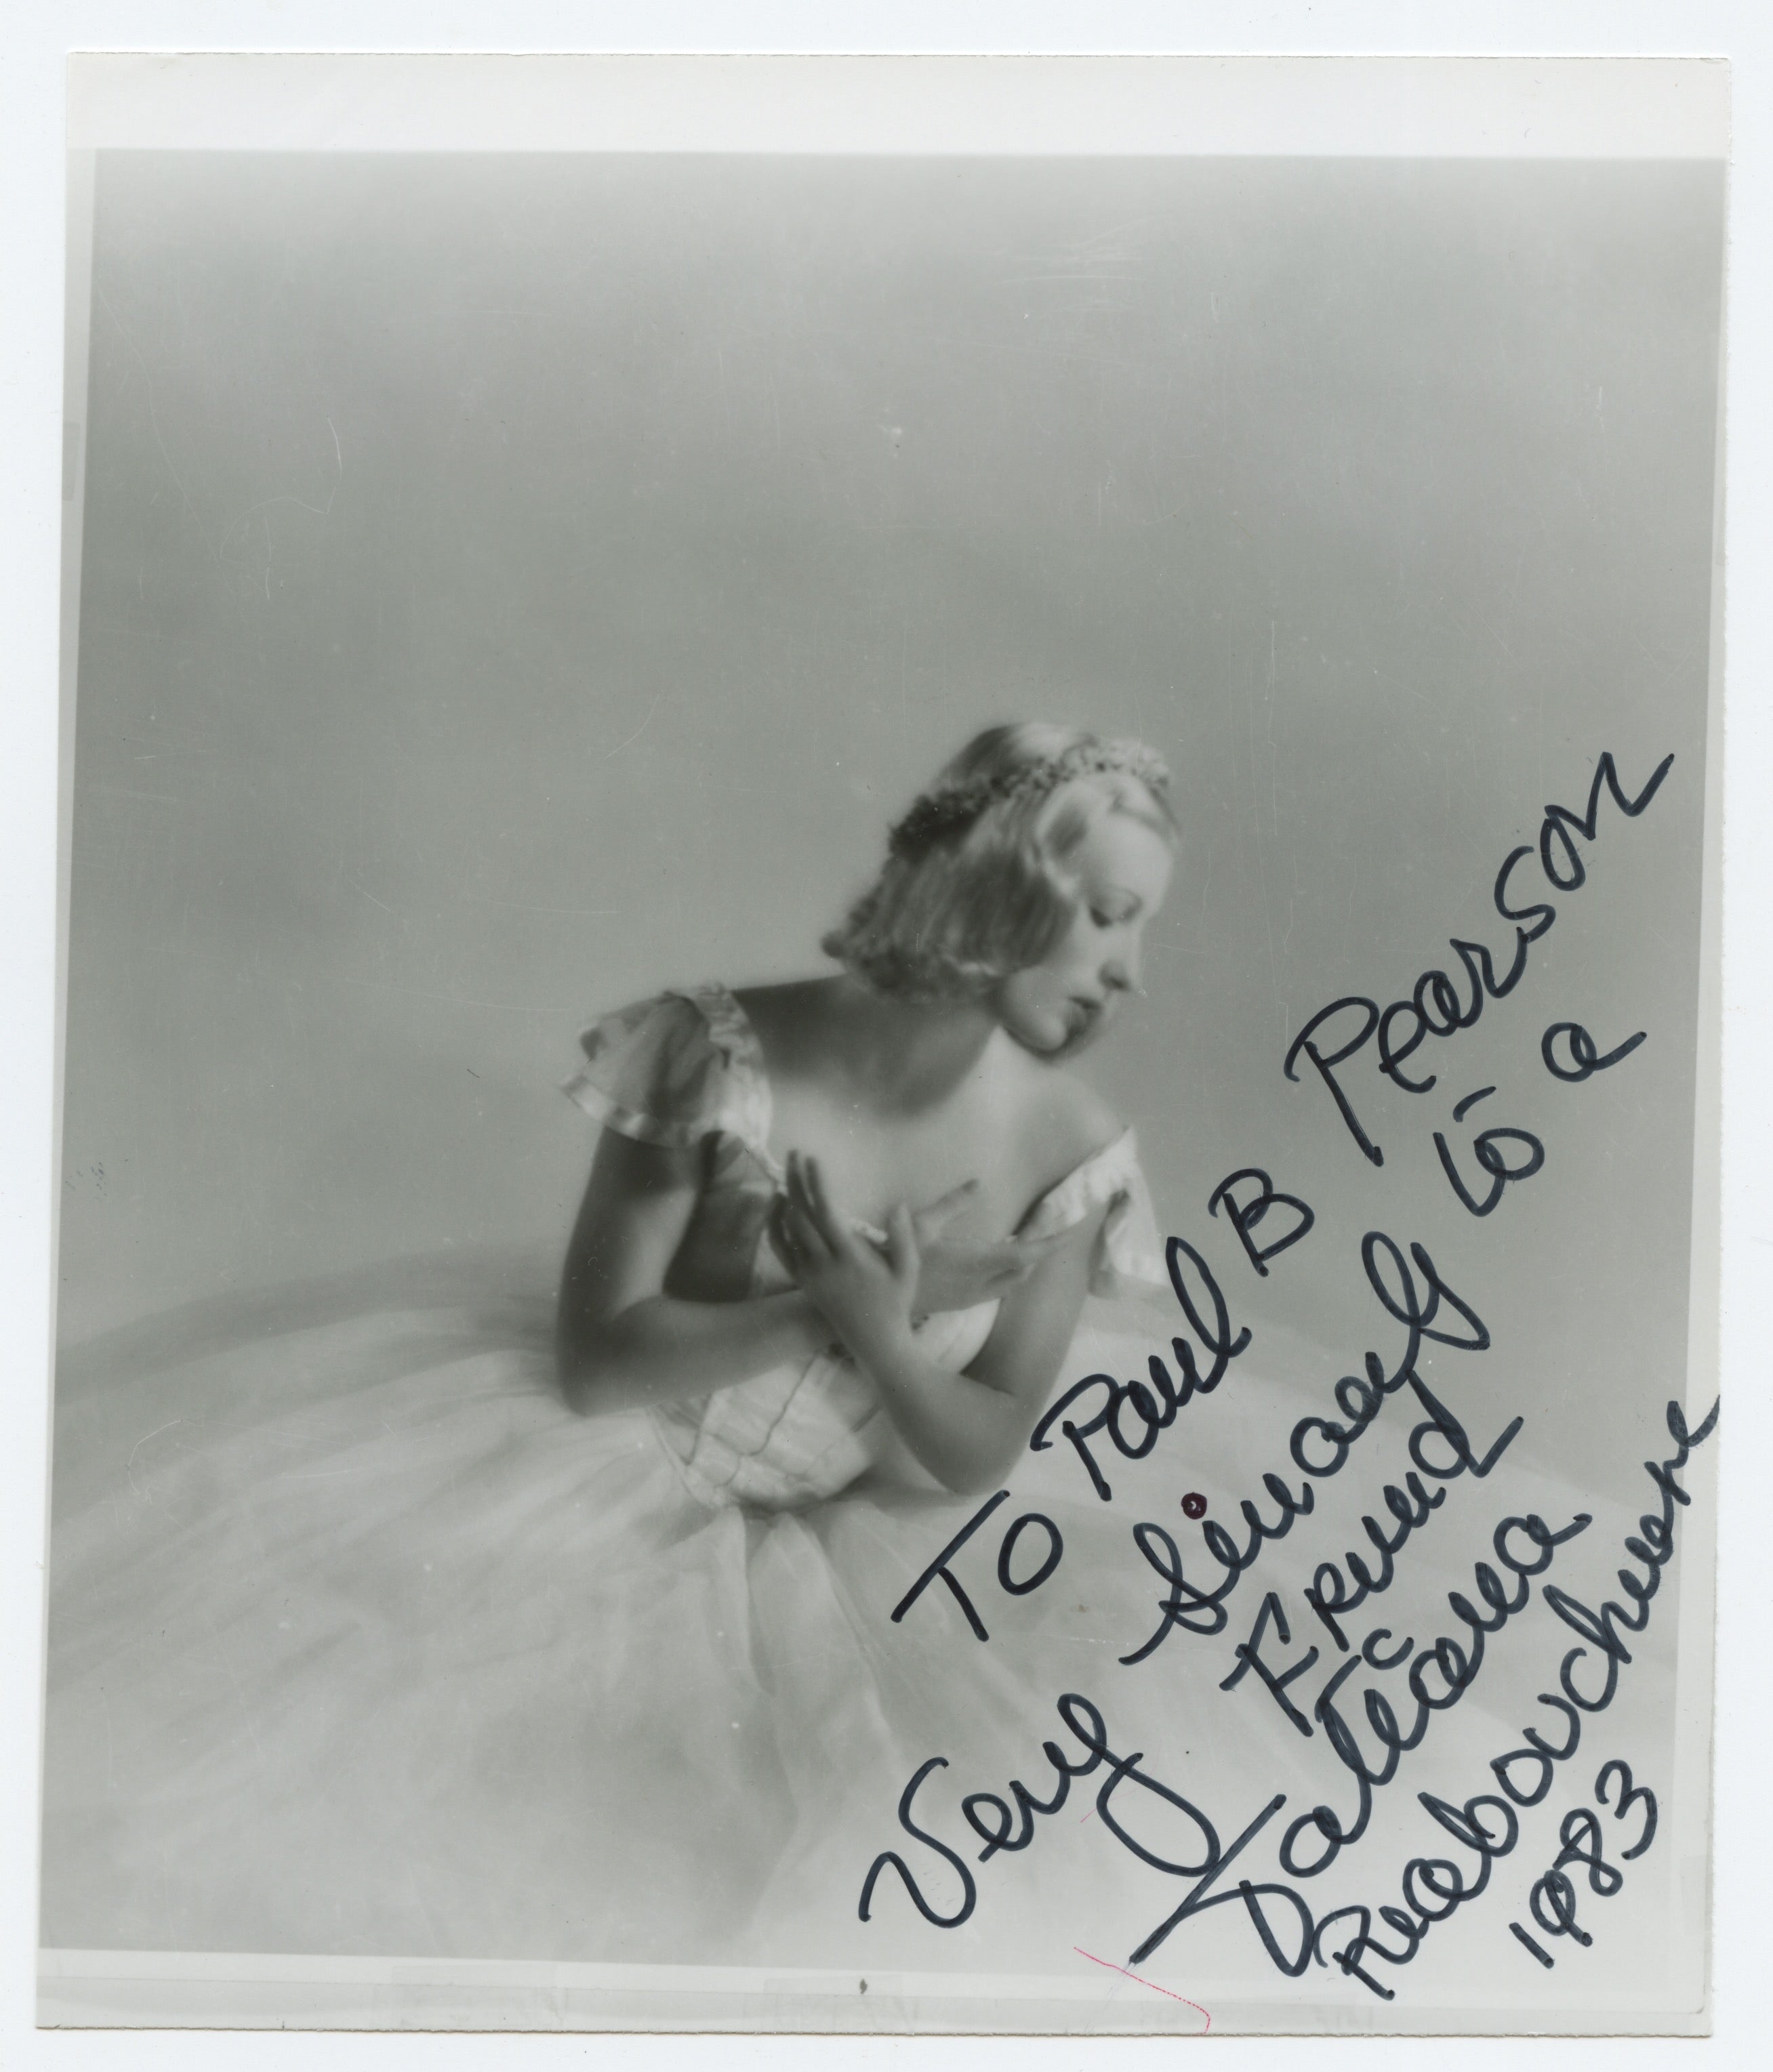 To Paul B Pearson
Very to a
Friend
Tatiana
1983